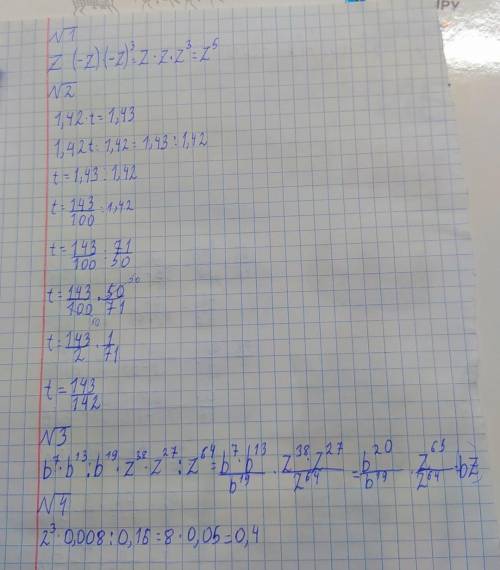 IPV
N1
z (-z) (-z)³ = z · z · z³ = z⁵
N2
1,42 · t = 1,43
1,42t : 1,42 = 1,43 : 1,42
t = 1,43 : 1,42
t = 143/100 : 1,42
t = 143/100 : 71/50
t = 143/100 · 50/71
t = 143/2 · 1/71
t = 143/142
N3
b⁷ · b¹³ : b¹⁹ · z³⁸ · z²⁷ : z⁶⁴ = b⁷ · b¹³/b¹⁹ · z³⁸ z²⁷/z⁶⁴ = b²⁰/b¹⁹ · z⁶⁵/z⁶⁴ = bz
N4
2³ · 0,008 : 0,16 = 8 · 0,05 = 0,4